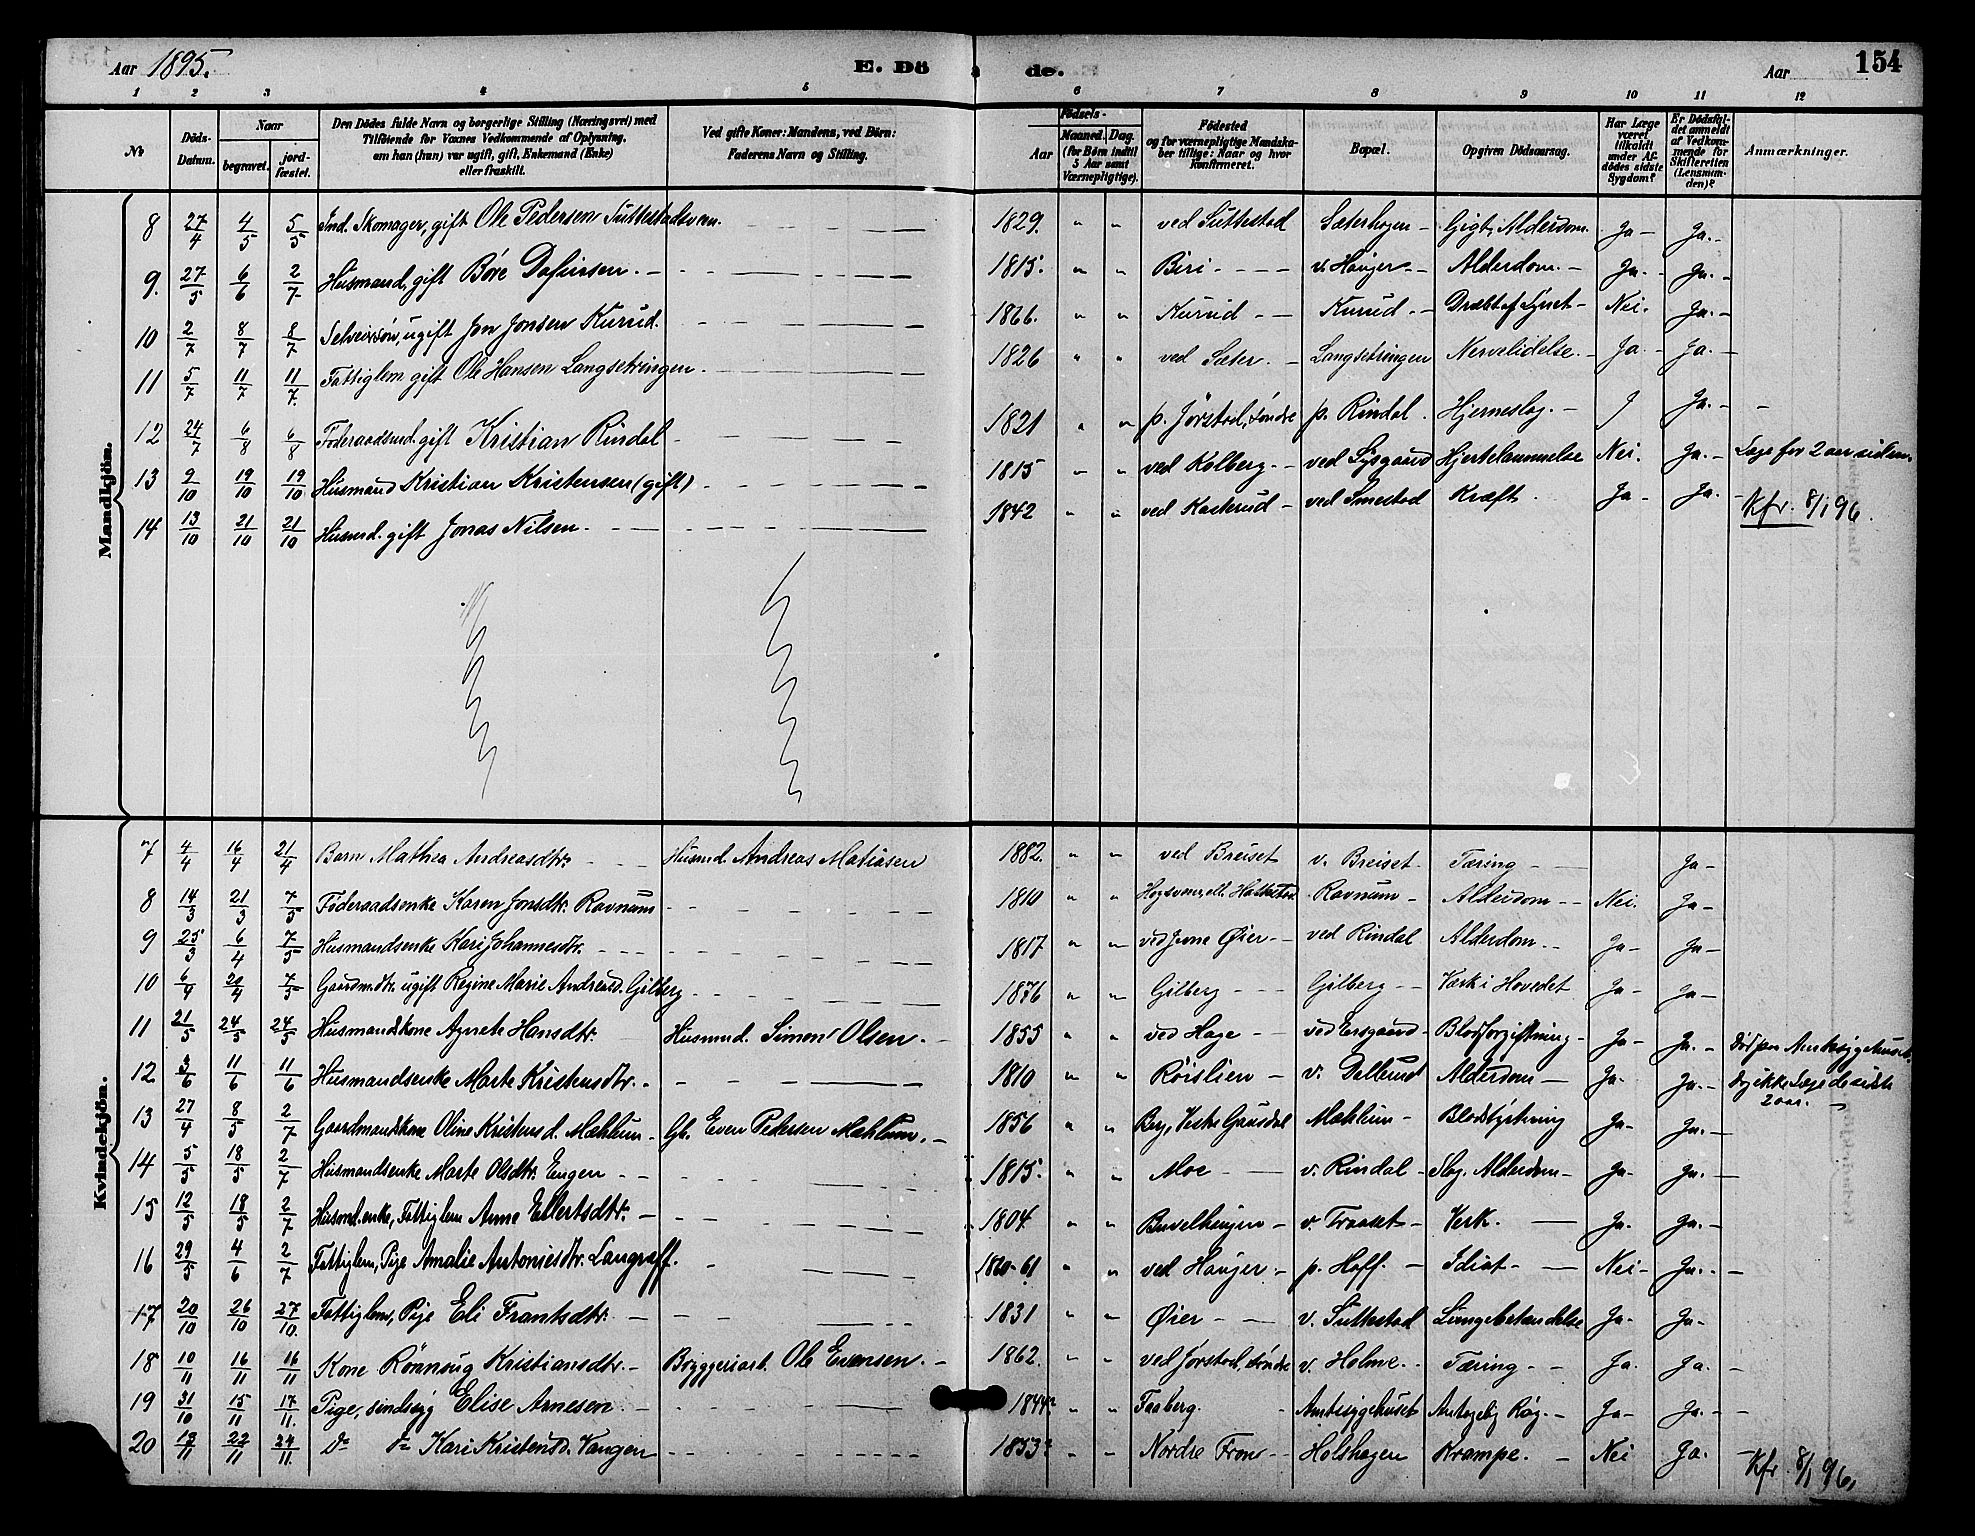 Aar 1895. E. Dö de. Aar 154
1 2 3 4 5 6 7 8 9 10 11 12
No Döds-Datum. Naar begravet. jord-fæstet. Den Dödes fulde Navn og borgerlige Stilling (Næringsvei) med Tilföiende for Voxnes Vedkommende af Oplysning, om han (hun) var ugift, gift, Enkemand (Enke) eller fraskilt. Ved gifte Koner: Mandens, ved Börn: Faderens Navn og Stilling. Födsels- Aar Maaned. Dag. (for Börn indtil 5 Aar samt Værnepligtige). Födested og for værnepligtige Mandskaber tillige: Naar og hvor Konfirmeret. Bopæl. Opgiven Dödsaarsag. Har Læge været tilkaldt under Afdödes sidste Sygdom? Er Dödsfaldet anmeldt af Vedkommende for Skifteretten (Lensmanden)? Anmærkninger.
Mandkjön.
8 27/4 4/5 5/5 Ind. Skomager, gift Ole Pedersen Suttestadsveen. 1829. " " ved Suttestad Sæterhagen - Gigt, Alderdom. Ja - Ja. -
9. 27/5 6/6 2/7 Husmand, gift Böre Dafinsen. - 1815. " " Biri - v. Haujer - Alderdom. - Ja. - Ja. -
10 2/7 8/7 8/7 Selveiersön, ugift Jon Jonsen Kurud. 1866. " " Kurud - Kurud. - Dræbt af Lynet - Nei. Ja. -
11 5/7 11/7 11/7 Fattiglem gift Ole Hansen Langsetringen. 1826 " " ved Sæter. - Langsetringen Nervelidelse. - Ja. - Ja. -
12 24/7 6/8 6/8 Föderaadsmd. gift Kristian Rindal - 1821 " " p. Jörstad, söndre p. Rindal. Hjerneslag. - J Ja. - -
13 9/10 19/10 19/10 Husmand Kristian Kristensen (gift) 1815 " " ved Kolberg. - ved Lysgaard Hjertelammelse Nei. Ja. - Læge for 2 aar siden.
14 13/10 21/10 21/10 Husmd. gift Jonas Nilsen. 1842 " " ved Kasterud - ved Smestad Kræft. Ja - Ja. - Kfr. 8/1 96.
Kvindekjön.
7 4/4 16/4 21/4 Barn Mathea Andreasdtr. Husmd. Andreas Matiasen 1882. " " ved Breiset v. Breiset - Tæring - Ja -
8 14/3 21/3 7/5 Föderaadsenke Karen Jonsdtr. Ravnum 1810 " " Ravnum - Alderdom - Nei. Ja -
9 25/3 6/4 7/5 Husmandsenke Kari Johannesdtr. 1817 " " ved Jevne Öier - ved Rindal Alderdom. - Ja - Ja -
10 6/4 20/4 7/5 Gaardm.dtr. ugift Regine Marie Andreasd. Gilberg 1876 " " Gilberg - Gilberg - Værk i Hovedet Ja - Ja -
11 21/5 24/5 24/5 Husmandskone Agnete Hansdtr. Husmd. Simen Olsen. - 1855 " " ved Hage - ved Ersgaard - Blodforgiftning - Ja - Ja. - Död paa Amtssygehuset.
12 3/6 11/6 11/6 Husmandsenke Marte Kristensdtr. - 1810 " " Röislien - v. Dellund Alderdom - Ja - Ja. - Dog ikke Læge de sidste 2 aar. -
13 27/4 8/5 2/7 Gaardmandskone Oline Kristens d. Mæhlum - Gb. Even Pedersen Mæhlum. - 1856 " " Berg, Vestre Gausdal Mæhlum - Blodstyrtning Ja - Ja. -
14 5/5 18/5 2/7 Husmandsenke Marte Olsdtr. Engen - 1815. " " Moe - v. Rindal - Slag. Alderdom - Ja - Ja. -
15 12/5 18/5 2/7 Husmd. enke, Fattiglem Anne Ellertsdtr. - 1804. " " v. Traaset - Verk. - Ja. Ja. -
16 29/5 4/6 2/7 Fattiglem, Pige Amalie Antoniesdtr. Langraff. 1860-61 " " ved Haujer - p. Hoff. - Idiot - Nei - Ja. -
17 20/10 26/10 27/10. Fattiglem, Pige Eli Frantsdtr. - 1831 " " Öier - v. Suttestad Lungebetændelse Ja - Ja. -
18 10/11 16/11 16/11 Kone Rönnaug Kristiansdtr. - Bryggeriarb. Ole Evensen. - 1862. " " ved Jörstad, söndre v. Holme. - Tæring - Ja. Ja. -
19 31/10 15/11 17/11. Pige, sindssyg Elise Arnesen - 1844? " " Faaberg. Amtssygehuset Ja - Ja. -
20 13/11 22/11 24/11. do do Kari Kristensd. Vangen 1853? " " Nordre Fron - Holshagen Krampe. - Nei Ja. - Kfr 8/1 96.